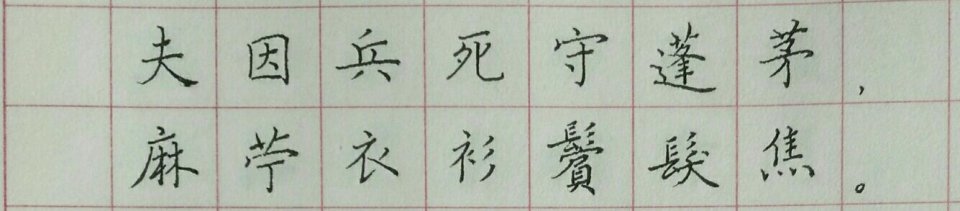 夫因兵死守蓬茅，
麻苧衣衫鬢髮焦。